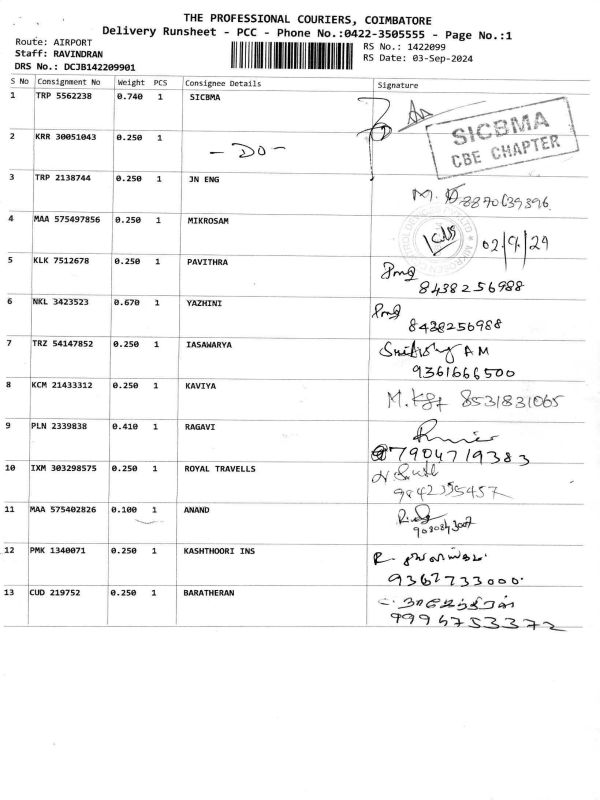 THE PROFESSIONAL COURIERS, COIMBATORE
Delivery Runsheet - PCC - Phone No.:0422-3505555 - Page No.:1
Route: AIRPORT
RS No.: 1422099
Staff: RAVINDRAN
RS Date: 03-Sep-2024
DRS No.: DCJB142209901
S No Consignment No Weight PCS Consignee Details Signature
1 TRP 5562238 0.740 1 SICBMA
SICBMA
CBE CHAPTER
2 KRR 30051043 0.250 1 - DO -
3 TRP 2138744 0.250 1 JN ENG
8870639396
4 MAA 575497856 0.250 1 MIKROSAM
5 KLK 7512678 0.250 1 PAVITHRA
8438256988
6 NKL 3423523 0.670 1 YAZHINI
8438256988
7 TRZ 54147852 0.250 1 IASAWARYA
9361666500
8 KCM 21433312 0.250 1 KAVIYA 8531831065
9 PLN 2339838 0.410 1 RAGAVI
7904719383
10 IXM 303298575 0.250 1 ROYAL TRAVELLS
11 MAA 575402826 0.100 1 ANAND
12 PMK 1340071 0.250 1 KASHTHOORI INS
9362733000
13 CUD 219752 0.250 1 BARATHERAN
9994753372